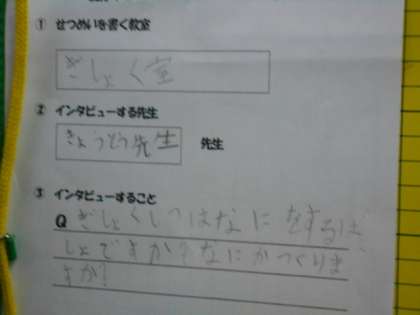 ① せつめいを書く教室
ぎしょく室
② インタビューする先生
きょうとう先生 先生
③ インタビューすること
Q ぎしょくしつはなにをするば
しょですか？なにかつくりま
すか？